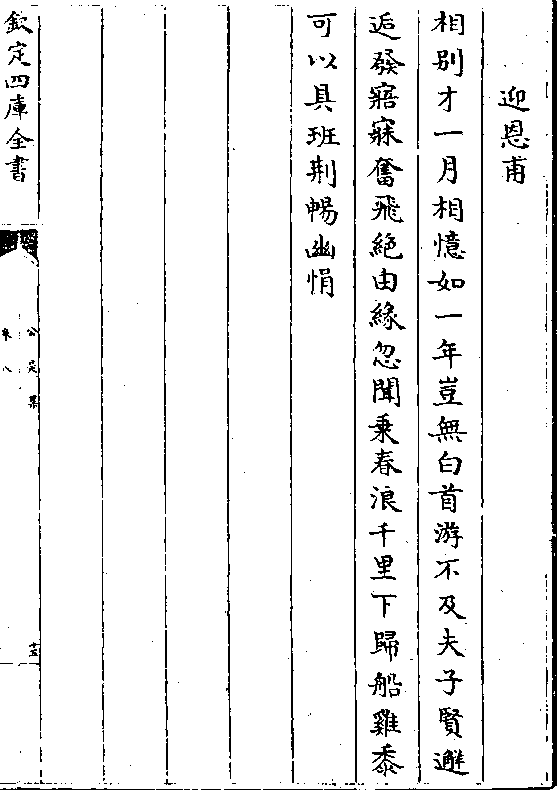 迎恩甫
相別才一月相憶如一年豈無白首游不及夫子賢邂
逅發寤寐奮飛絶由緣忽聞乗春浪千里下歸船雞黍
可以具班荆暢幽悁
欽定四庫全書
公是集
卷八
十五